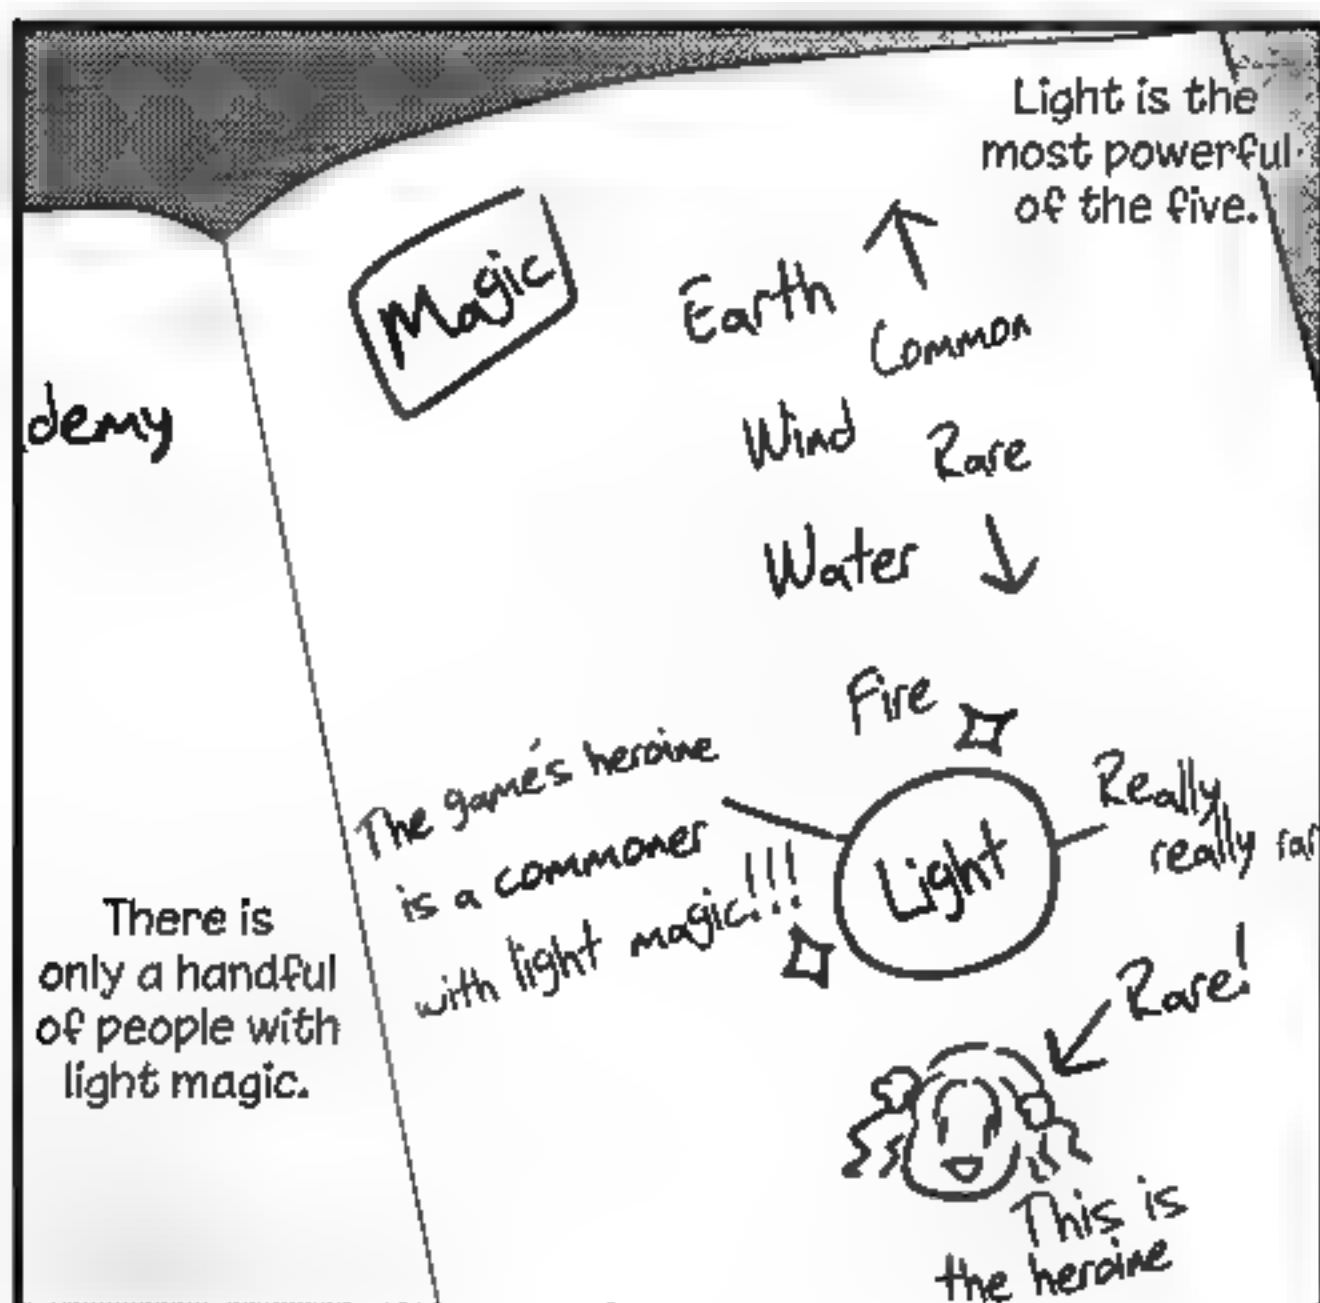 Light is the
most powerful
of the five.
Magic
Earth
Common
Wind
Rare
Water
Fire
demy
The game's heroine
is a commoner
with light magic!!!
Light
Really,
really rar
Rare!
There is
only a handful
of people with
light magic.
This is
the heroine